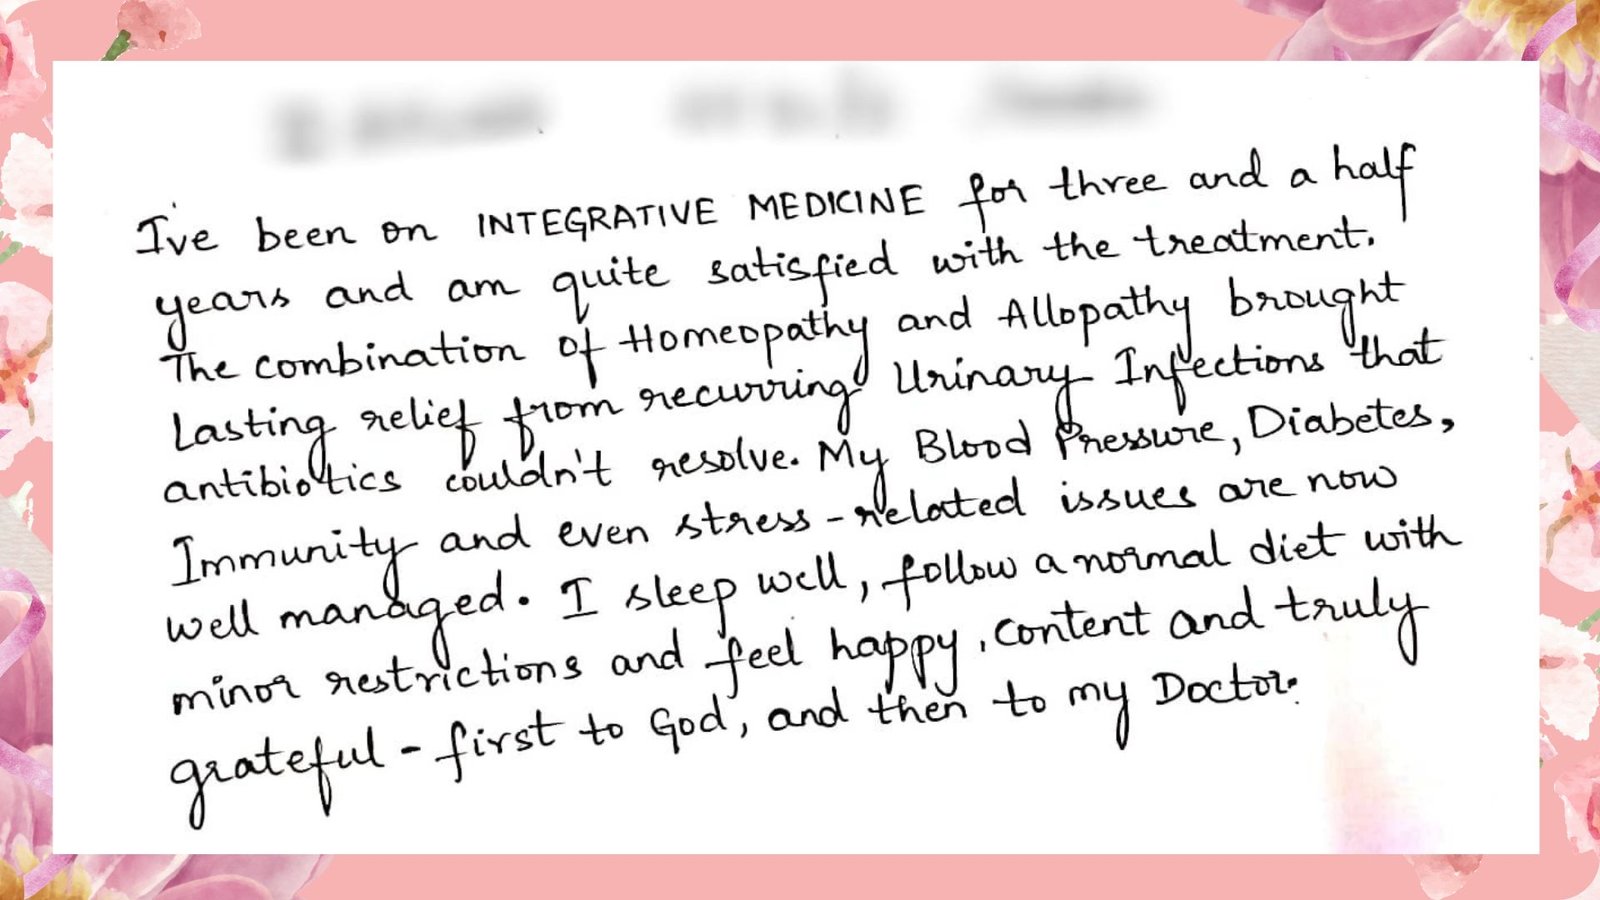 I've been on INTEGRATIVE MEDICINE for three and a half
years and am quite satisfied with the treatment.
The combination of Homeopathy and Allopathy brought
Lasting relief from recurring Urinary Infections that
antibiotics couldn't resolve. My Blood Pressure, Diabetes,
Immunity and even stress-related issues are now
well managed. I sleep well, follow a normal diet with
minor restrictions and feel happy, content and truly
grateful - first to God, and then to my Doctor.